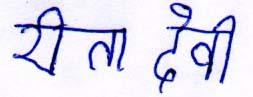 रीता देवी